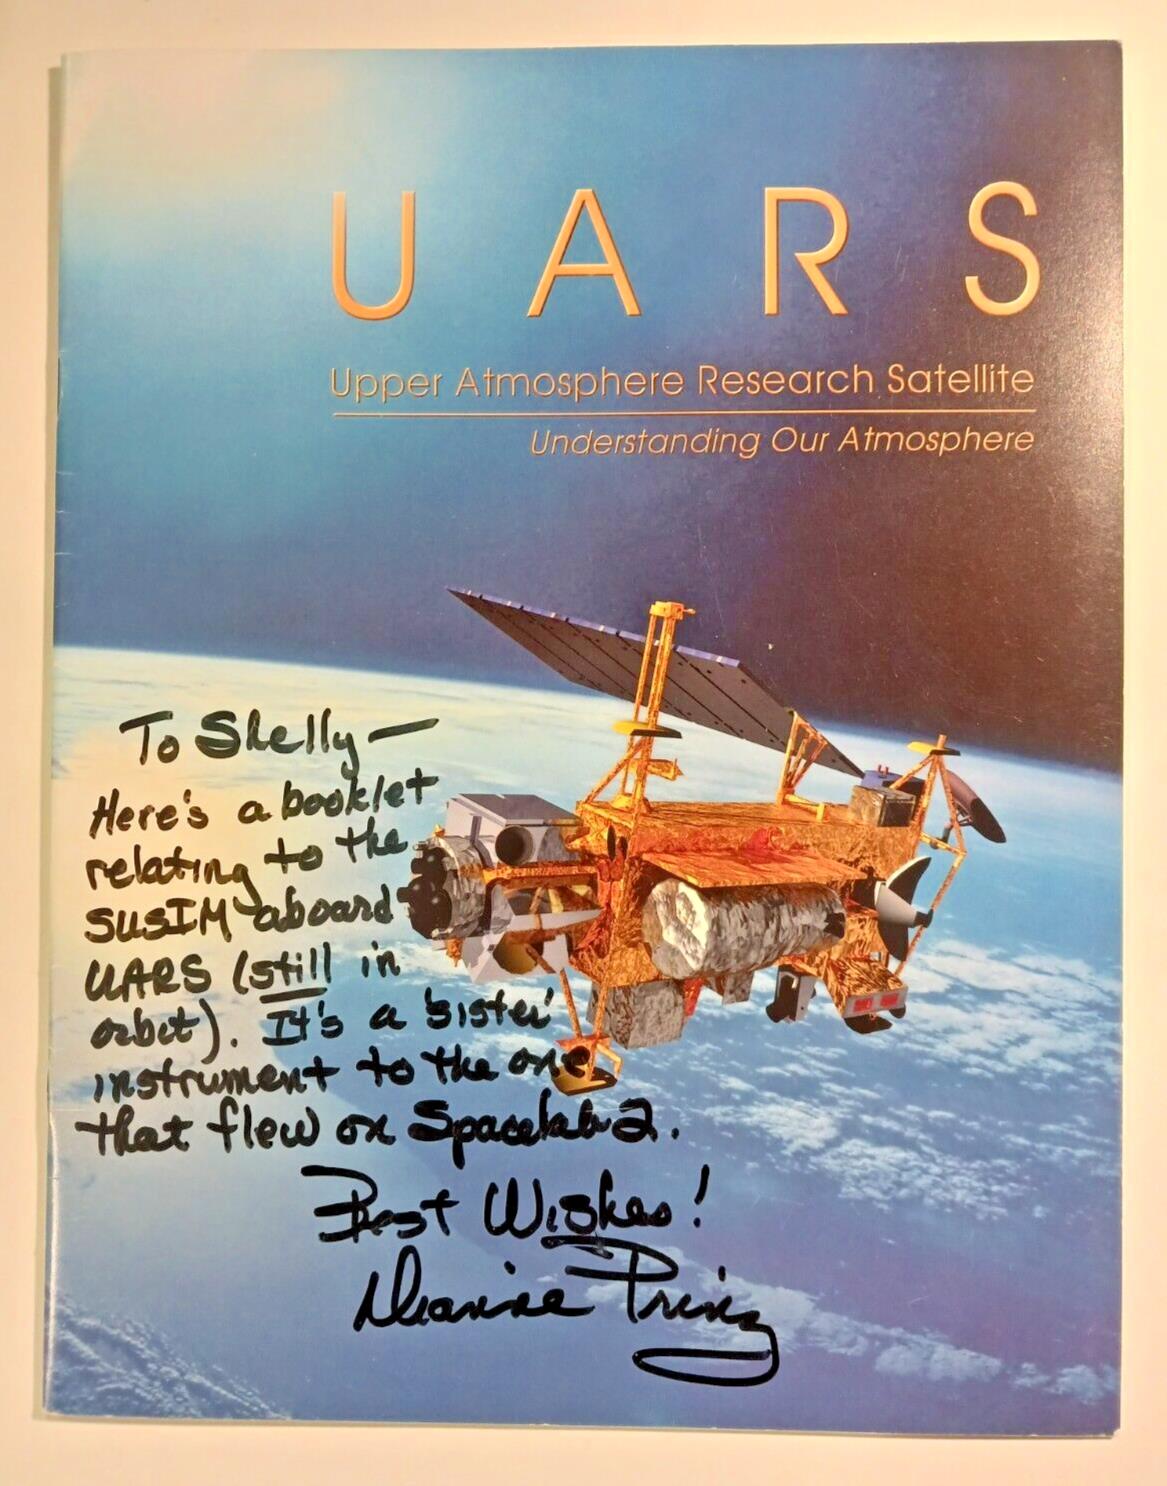 U A R S
Upper Atmosphere Research Satellite
Understanding Our Atmosphere
To Shelly —
Here's a booklet
relating to the
SUSIM aboard
UARS (still in
orbit). It's a 'sister'
instrument to the one
that flew on Spacelab 2.
Best Wishes!
Dianne Prinz